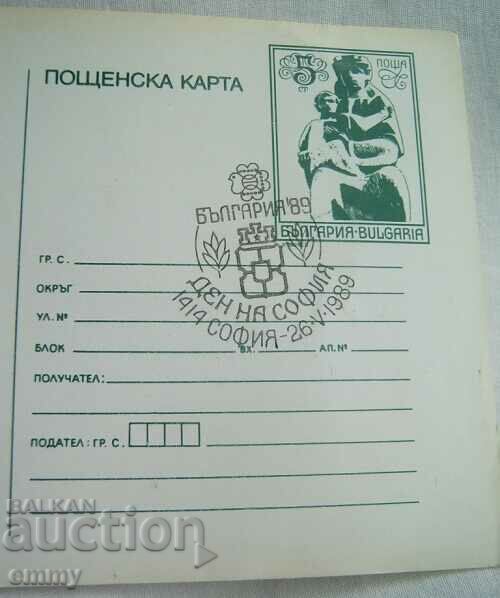 ПОЩЕНСКА КАРТА
5
СТ
ПОЩА
БЪЛГАРИЯ·BULGARIA
БЪЛГАРИЯ'89
ДЕН НА СОФИЯ
1414 СОФИЯ-26·V·1989
ГР. С.
ОКРЪГ
УЛ. №
БЛОК ВХ. АП. №
ПОЛУЧАТЕЛ:
ПОДАТЕЛ: ГР. С.
BALKAN
auction
emmy